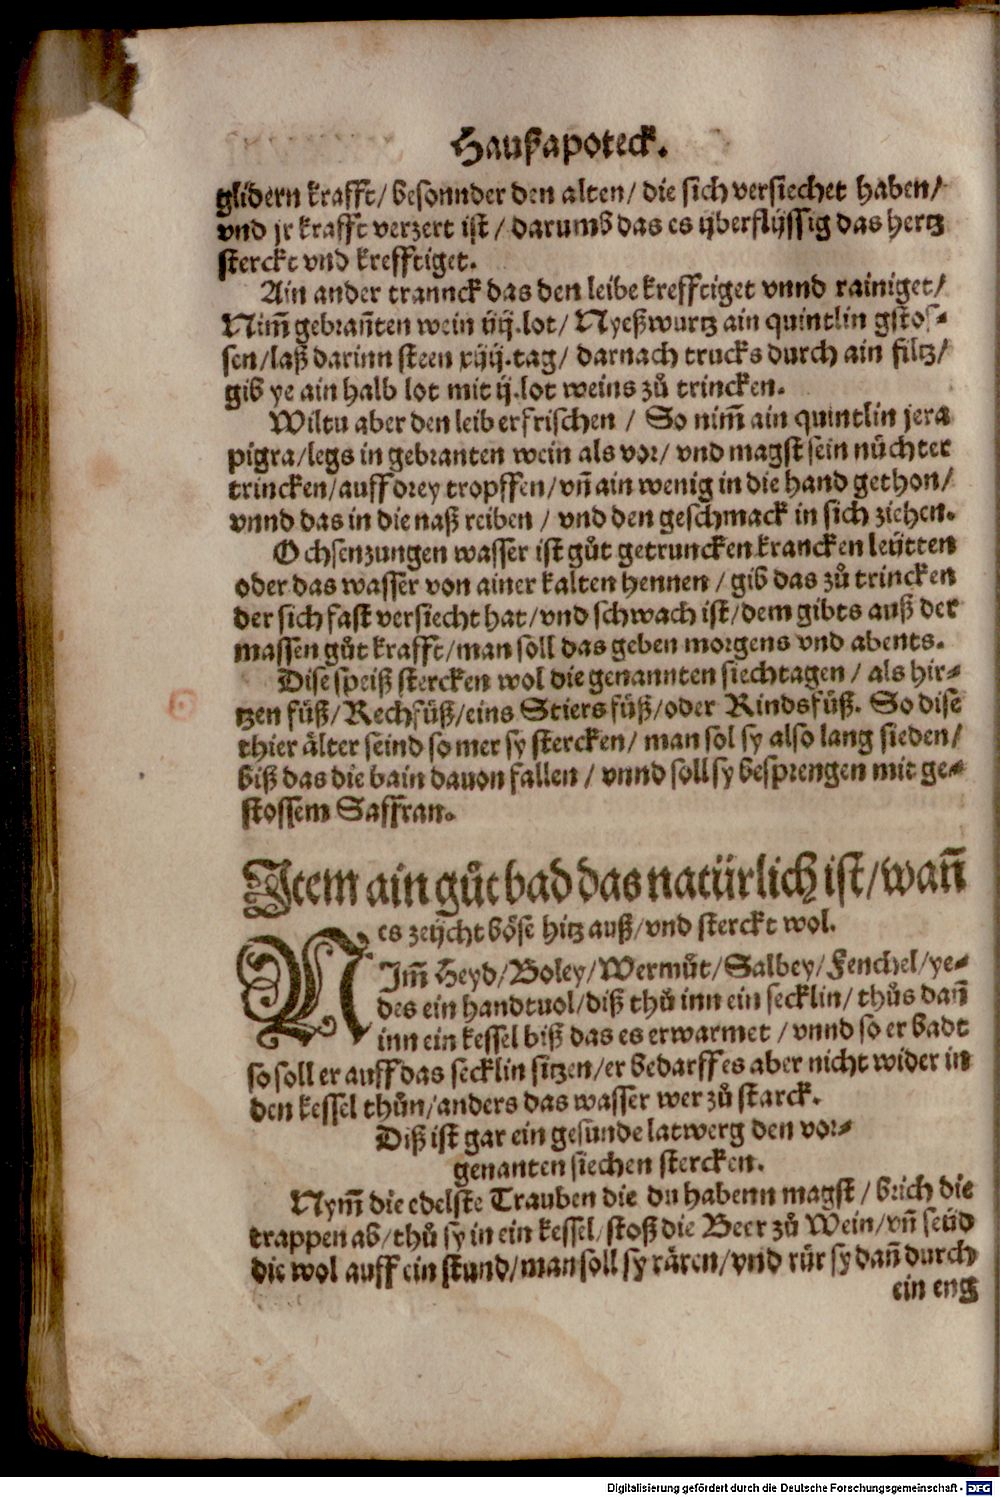 Haußapoteck.
glidern krafft/ besonnder den alten/ die sich versiechet haben/
vnd jr krafft verzert ist / darumb das es ÿberflÿssig das hertz
sterckt vnd krefftiget.
Ain ander tranck das den leibe krefftiget vnnd rainiget/
Nim̃ gebrañten wein iij. lot/ Nyeßwurtz ain quintlin gstos-
sen/laß darinn steen xiij.tag/ darnach trucks durch ain filtz/
gib ye ain halb lot mit ij.lot weins zů trincken.
Wiltu aber den leib erfrischen / So nim̃ ain quintlin jera
pigra/legs in gebranten wein als vor/ vnd magst sein nüchter
trincken/auff drey tropffen/vñ ain wenig in die hand gethon/
vnnd das in die naß reiben / vnd den geschmack in sich ziehen.
Ochsenzungen wasser ist gůt getruncken krancken leÿtten
oder das wasser von ainer kalten hennen / gib das zů trincken
der sich fast versiecht hat/vnd schwach ist/dem gibts auß der
massen gůt krafft/man soll das geben morgens vnd abents.
Dise speiß stercken wol die genannten siechtagen / als hir-
tzen füß/Rechfüß/eins Stiers füß/oder Rindsfüß. So dise
thier älter seind so mer sy stercken/ man sol sy also lang sieden/
biß das die bain dauon fallen / vnnd soll sy besprengen mit ge-
stossem Saffran.
Item ain gůt bad das natürlich ist/wañ
es zeÿcht böse hitz auß/vnd sterckt wol.
NIm̃ Heyd/Boley/Wermůt/Salbey/Fenchel/ye-
des ein handtuol/diß thů inn ein secklin/ thůs dañ
inn ein kessel biß das es erwarmet / vnnd so er badt
so soll er auff das secklin sitzen/er bedarff es aber nicht wider in
den kessel thůn/anders das wasser wer zů starck.
Diß ist gar ein gesunde latwerg den vor-
genanten siechen stercken.
Nym̃ die edelste Trauben die du habenn magst / brich die
trappen ab/thů sy in ein kessel/stoß die Beer zů Wein/vñ seüd
die wol auff ein stund/man soll sy rären/vnd rür sy dañ durch
ein eng
Digitalisierung gefördert durch die Deutsche Forschungsgemeinschaft - DFG